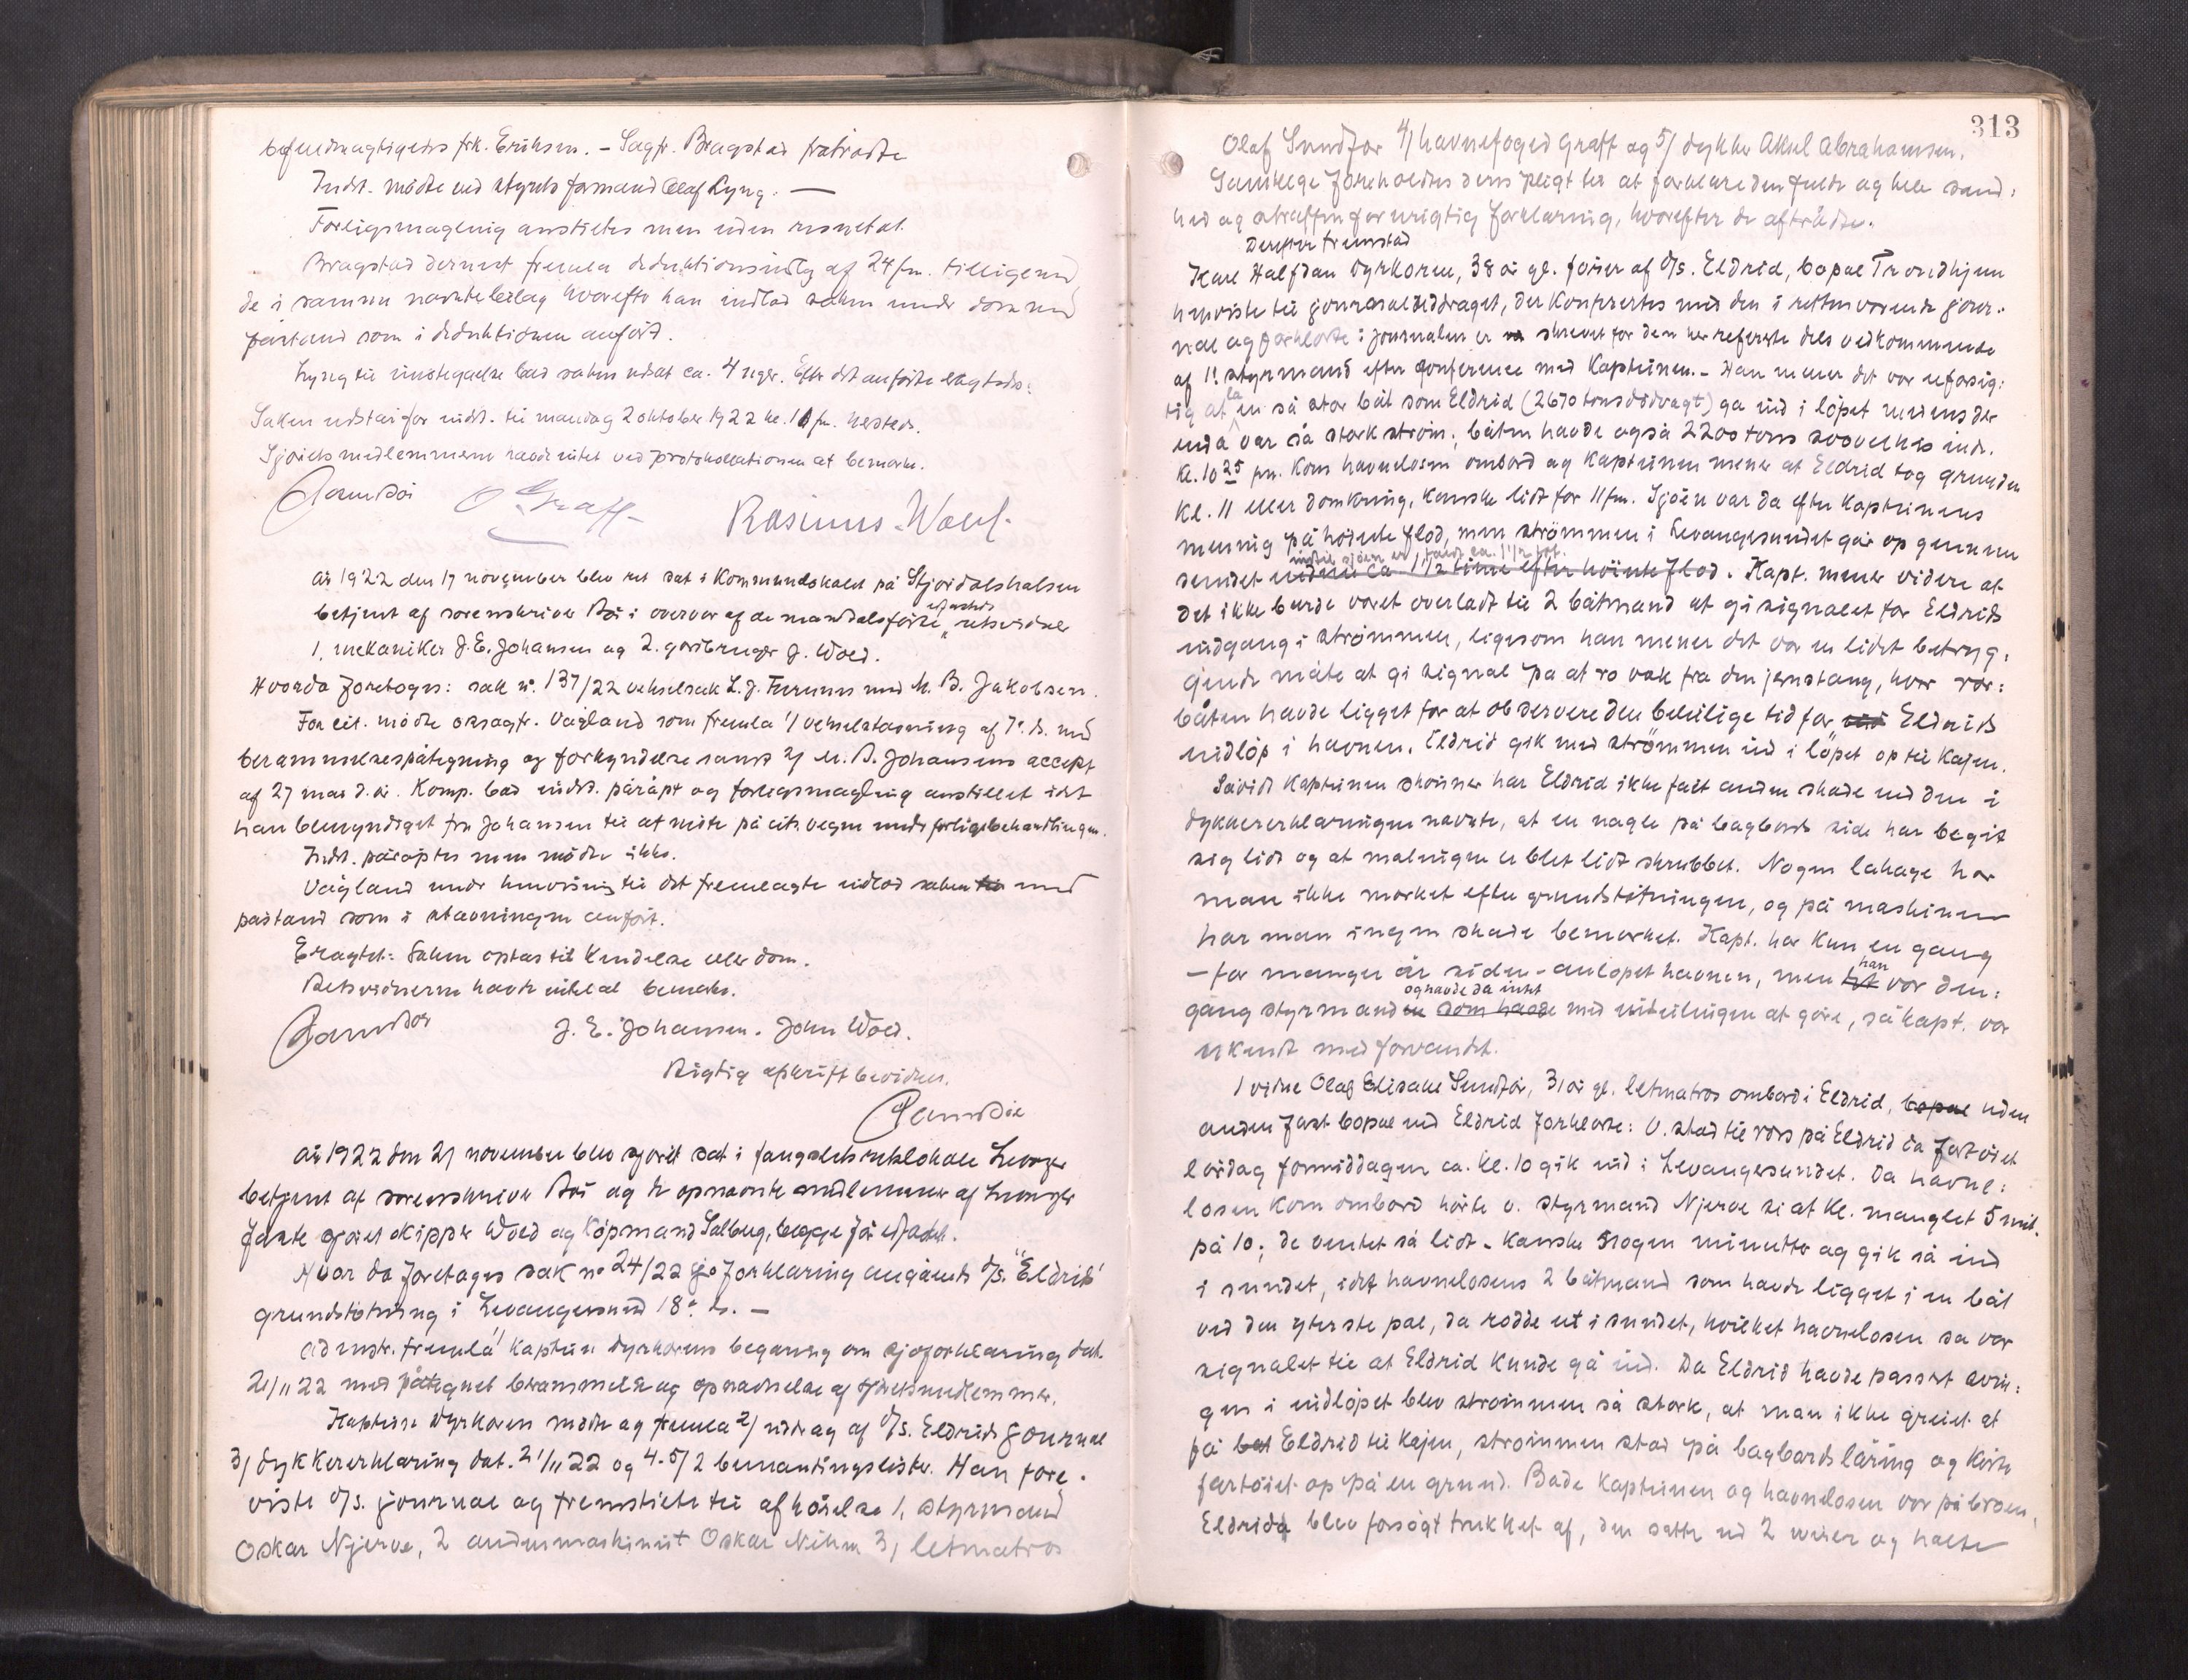 befuldmægtigets frk. Eriksen. – Sagfr. Bragstad fratrådte
Indst. mødte ved styrets formand Olaf Lyng. —
Forligsmægling anstiltes men uden resultat.
Bragstad dernæst fremla deduktionsindlæg af 24/ m. tilligemed
de i samme nævnte bilag hvorefter han indlod saken under dom med
påstand som i deduktionen anført.
Lyng til imøtegåelse bad saken utsat ca. 4 uger. Efter det anførte eragtedes:
Saken utstår for indst. til mandag 2 oktober 1922 kl. 11 fm. hersteds.
Sjørets medlemmerne havde intet ved protokollationen at bemærke.
O Graff Rasmus Woll.
år 1922 den 17 november blev ret sat i Kommunelokalet på Stjørdalshalsen
betjent af sorenskriver Bø i overvær af de mandtalsførte edfæstede retsvidner
1. mekaniker J. E. Johansen og 2. gårdbruger J. Wold.
Hvorda foretoges: sak nr. 137/22 vekselsak L. J. Furunes mod M. B. Jakobsen.
For cit. mødte o.r.sagfr. Vågland som fremla 1/ vekselstævning af 7. ds. med
berammelsespåtegning og forkyndelse samt 2/ M. B. Johansens accept
af 27 mai d.å. Komp. bad indst. påråpt og forligsmægling anstillet idet
han bemyndiget fra Johansen til at møte på cits. vegne under forligsbehandlingen.
Indst. påråptes men mødte ikke.
Vågland under henvisning til det fremlagte indlod saken med
påstand som i stævningen anført.
Eragtet: Saken optas til Kendelse eller dom.
Retsvidnerne havde intet at bemerke.
J. E. Johansen. John Wold.
Rigtig afskrift bevidnes.
år 1922 den 21 november blev sjøret sat i fængslets retslokale Levanger
betjent af sorenskriver Bø og de opnævnte medlemmer af Levanger
faste sjøret skipper Wold og Kjøpmand Salberg, begge før edfæstet.
Hvor da foretages sak no 24/22 sjøforklaring angående d/s. "Eldrid"s
grundstøtning i Levangersund 18. ds. —
adminstr. fremla 1/ Kaptein Dyrkorens begæring om sjøforklaring dat.
21/11 22 med påtegnet berammelse og opnævnelse af sjøretsmedlemmer.
Kaptein Dyrkoren mødte og fremla 2/ utdrag af d/s. Eldrids journal
3/ dykkererklæring dat. 21/11 22 og 4-5/ 2 bemaningslister. Han fore-
viste d/s. journal og fremstilte til afhørelse 1, styrmand
Oskar Njerve, 2 andenmaskinist Oskar Nihm 3, letmatros
313
Olaf Sundfør 4/ havnefoged Graff og 5/ dykker Aksel Abrahamsen.
Samtlige foreholdtes deres pligt til at forklare den fulde og hele sand:
hed og straffen for urigtig forklaring, hvorefter de aftrådte.
Derefter fremstod
Karl Halfdan Dyrkoren, 38 år gl. fører af d/s. Eldrid, bopæl Trondhjem
henviste til journaluddraget, der konfertes med den i retten værende jour-
nal og forklarte: Journalen er skrevet for den her refererte dels vedkommende
af 1. styrmand efter konference med Kapteinen. – Han mener det var uforsig:
tig at la en så stor båt som Eldrid (2670 tons dødvægt) gå ind i løpet medens der
enda var så sterk strøm; båten havde også 2200 tons inde.
Kl. 10 25 fm. kom havnelosen ombord og Kapteinen mener at Eldrid tog grunden
kl. 11 eller deromkring, kanske lidt før 11 fm. Sjøen var da efter Kapteinens
mening på høieste flod, men strømmen i Levangersundet går op gjennem
indtil sjøen er faldt ca. 1 1/2 fot.
sundet indtil ca 1 1/2 time efter høieste flod. Kapt. mener videre at
det ikke burde været overladt til 2 båtmænd at gi signalet for Eldrids
indgang i strømmen, ligesom han mener det var en lidet betryg:
gende måte at gi signal på at ro væk fra den jernstang, hvor ror:
båten havde ligget for at observere den beleilige tid for Eldrids
indløp i havnen. Eldrid gik med strømmen ind i løpet op til Kajen.
Såvidt Kapteinen skønner har Eldrid ikke fåt anden skade end den i
dykkererklæringen nævnte, at en nagle på bagbords side har begit
sig lidt og at malingen er blet lidt skrubbet. Nogen lækage har
man ikke merket efter grundstøtningen, og på maskinen
har man ingen skade bemerket. Kapt. har kun en gang
– for mange år siden – anløpet havnen, men han var den:
gang styrmand og havde da intet som havde med indseilingen at gøre, så kapt. var
ukendt med farvandet.
1 vidne Olaf Elisæus Sundfør, 31 år gl. letmatros ombord i Eldrid, bopæl uden
anden fast bopæl end Eldrid forklarte: V. stod til rors på Eldrid da fartøiet
lørdag formiddagen ca. kl. 10 gik ind i Levangersundet. Da havne:
losen kom ombord hørte v. styrmand Njerve si at kl. manglet 5 mit.
på 10; de ventet så lidt – kanske nogen minutter og gik så ind
i sundet, idet havnelosens 2 båtmænd som havde ligget i en båt
ved den yterste pæl, da rodde ut i sundet, hvilket havnelosen sa var
signalet til at Eldrid kunde gå ind. Da Eldrid havde passert svin:
gen i indløpet blev strømmen så sterk, at man ikke greiet at
få Eldrid til kajen, strømmen stod på bagbords låring og kjørte
fartøiet op på en grund. Både Kapteinen og havnelosen var på broen.
Eldrid blev forsøgt trukket af, den satte ud 2 wirer og halte